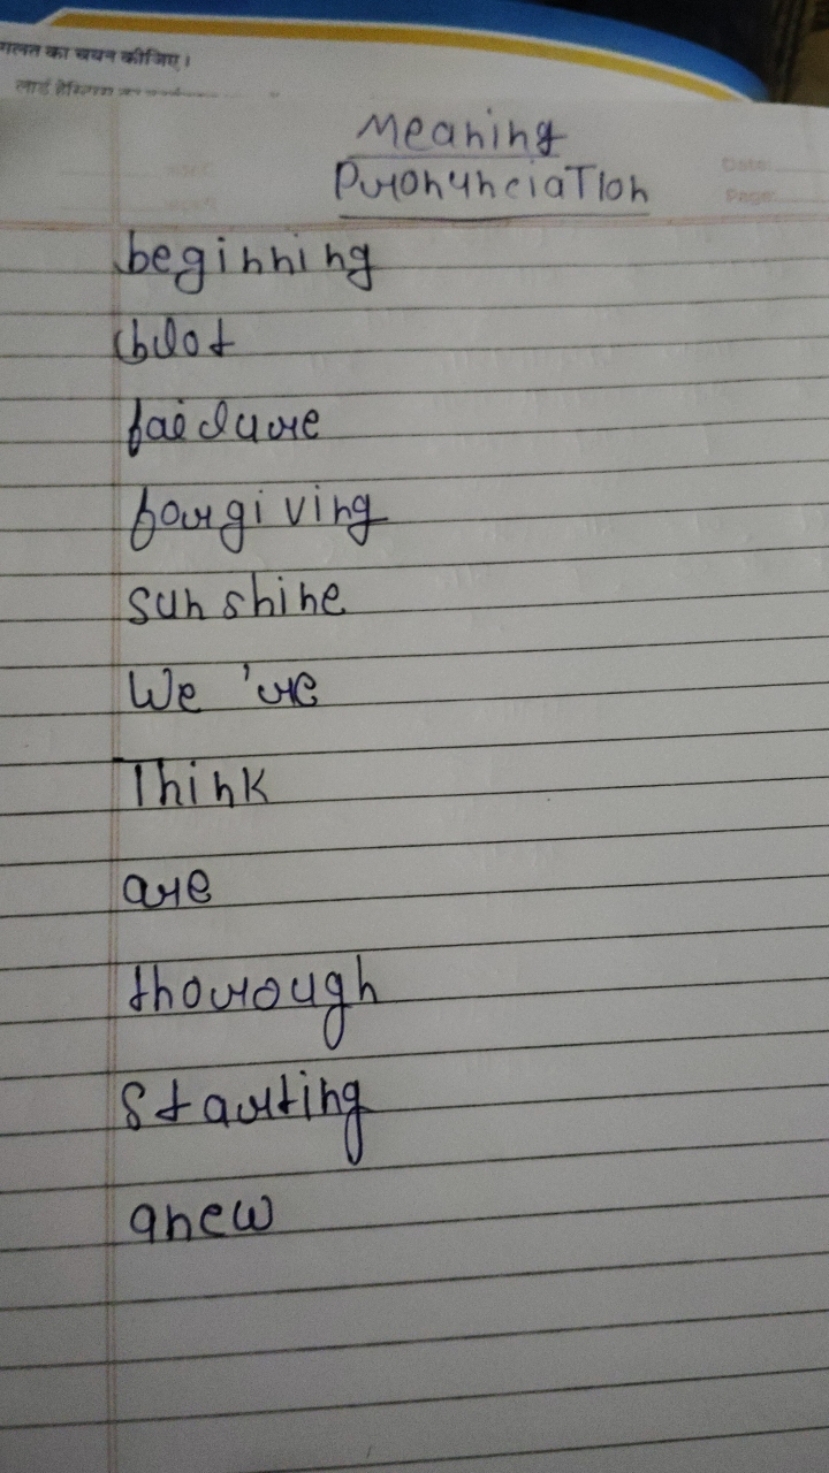 गलत का चयन कीजिए।
Date:
Page:
Meaning
Pronunciation
beginning
blot
failure
forgiving
sunshine
We're
Think
are
thorough
Starting
anew